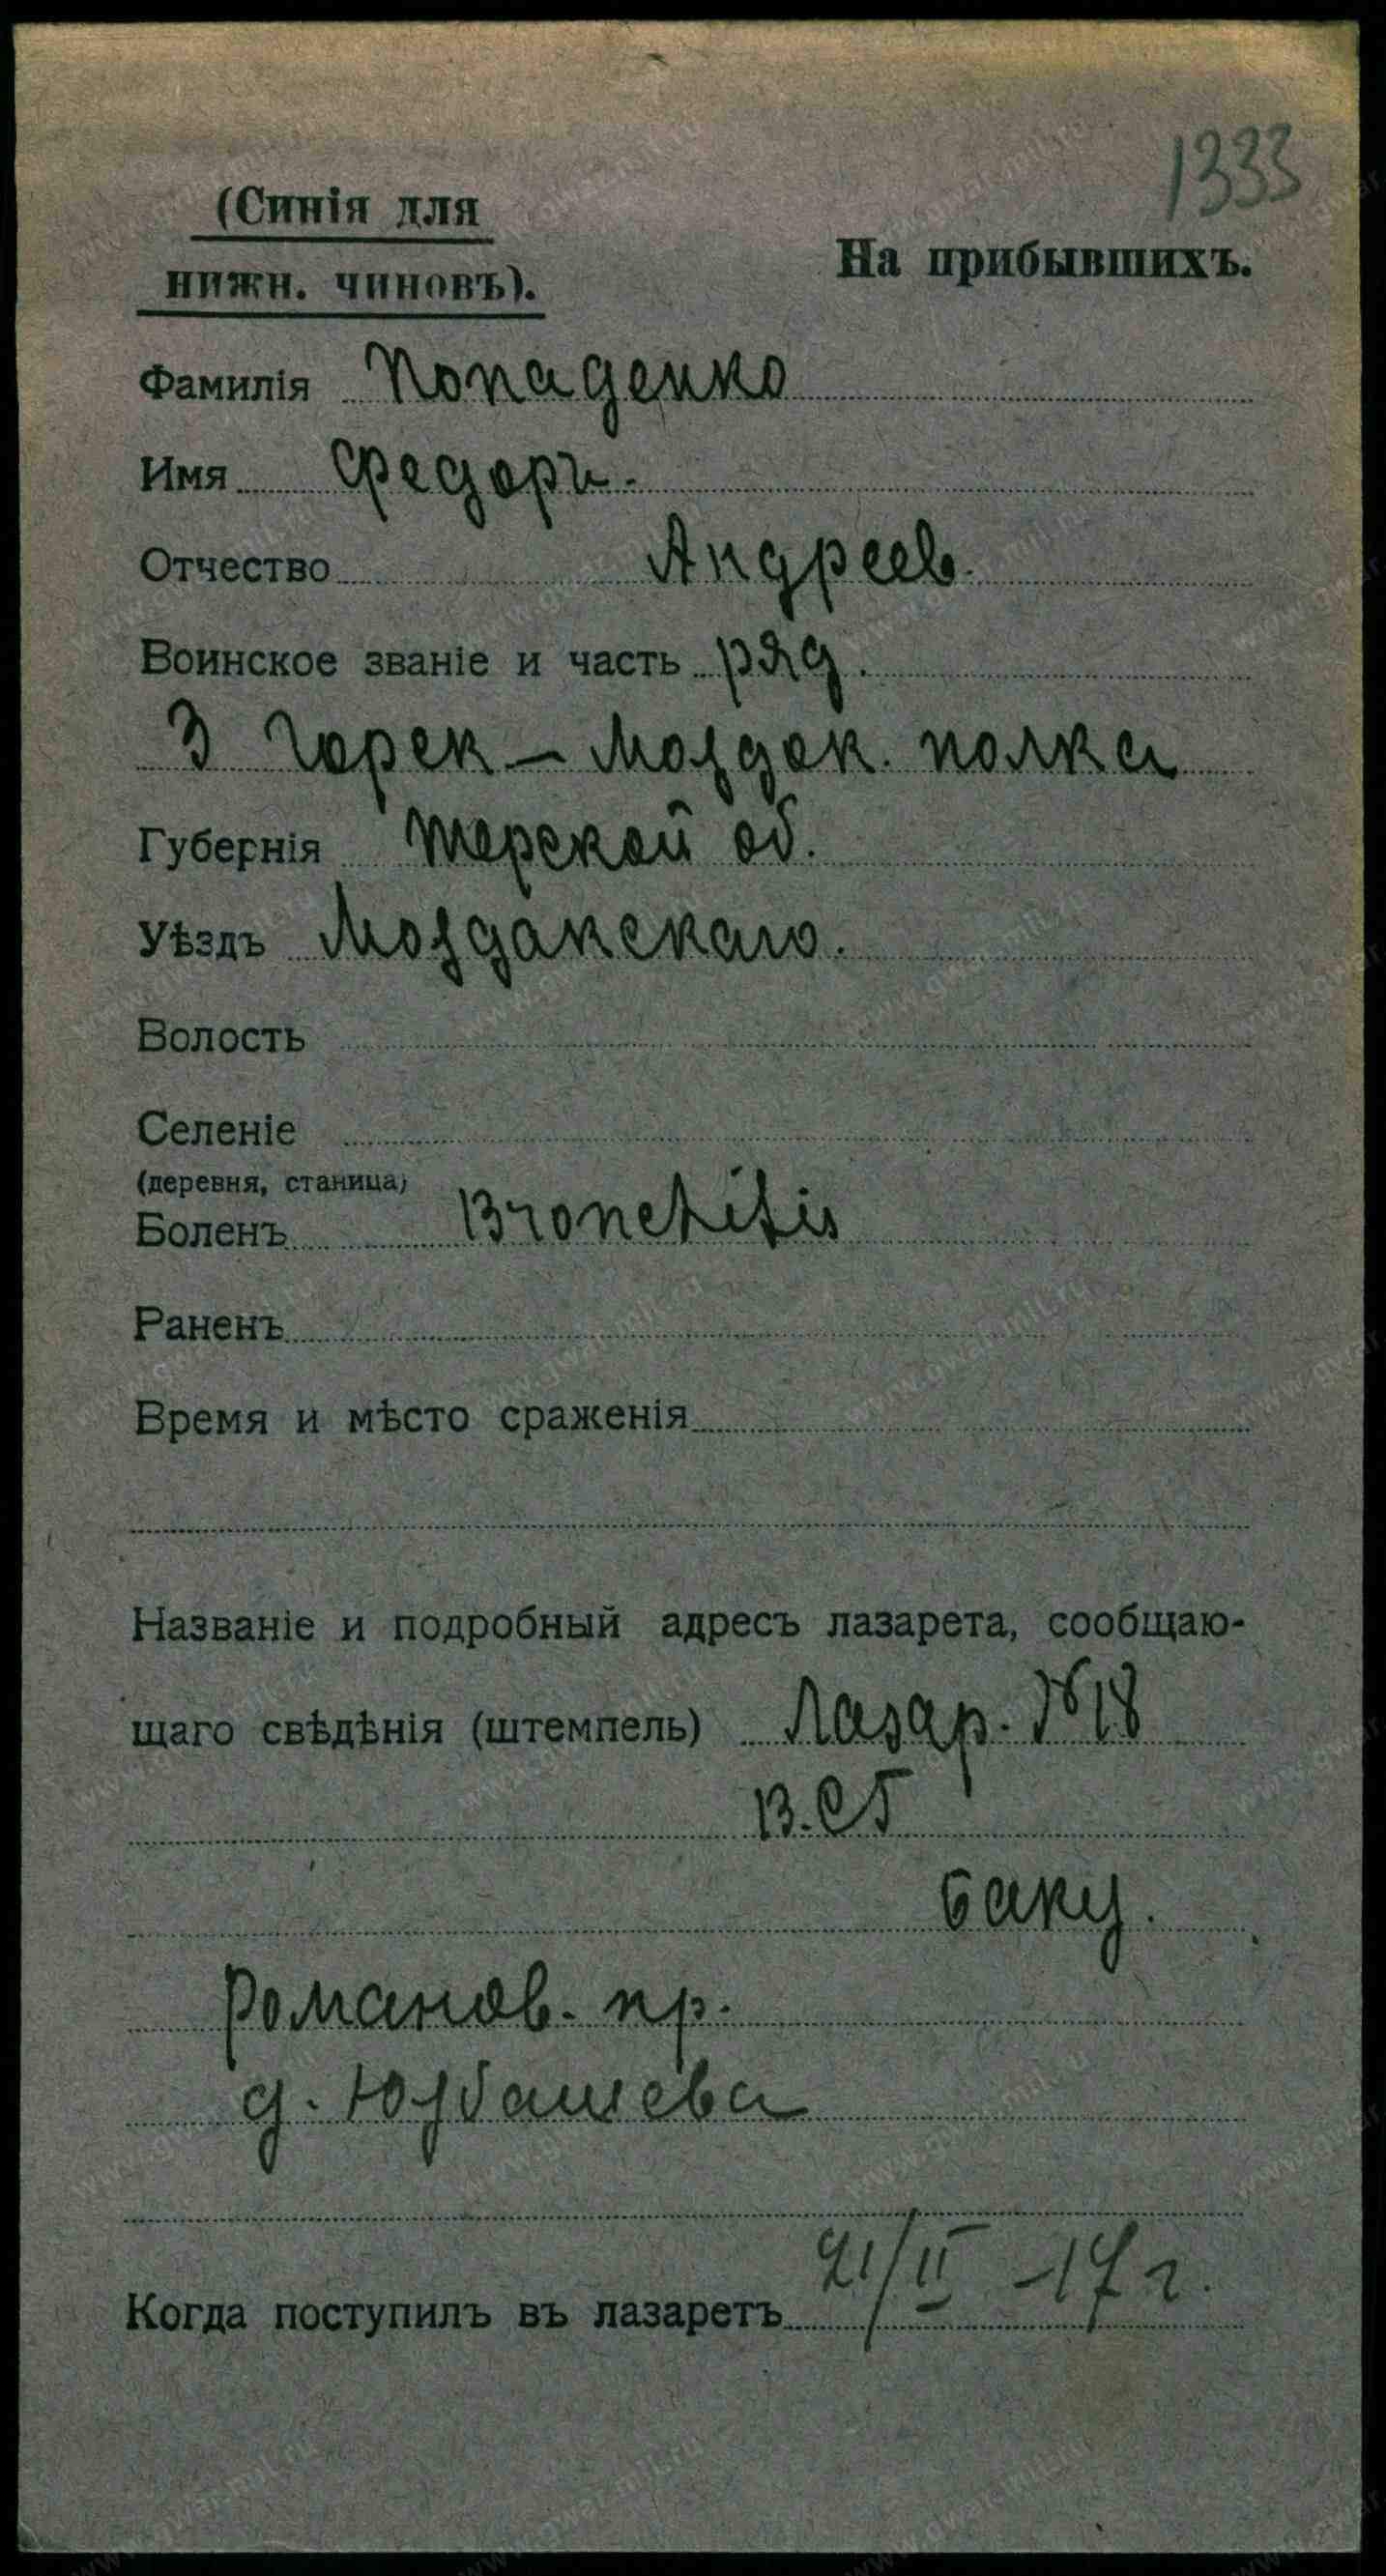 1333
(Синія для
нижн. чиновъ).
На прибывшихъ.
Фамилія Попаденко
Имя Федоръ.
Отчество Андреев.
Воинское званіе и часть ряд.
3 Горск – Моздок. полка
Губернія Терской об.
Уѣздъ Моздокскаго.
Волость
Селеніе
(деревня, станица)
Боленъ Bronchitis
Раненъ
Время и мѣсто сраженія
Названіе и подробный адресъ лазарета, сообщаю-
щаго свѣдѣнія (штемпель) Лазар. № 18
В.С.Г
Баку.
Романов. пр.
д. Юзбашева
Когда поступилъ въ лазаретъ 21/II – 17 г.